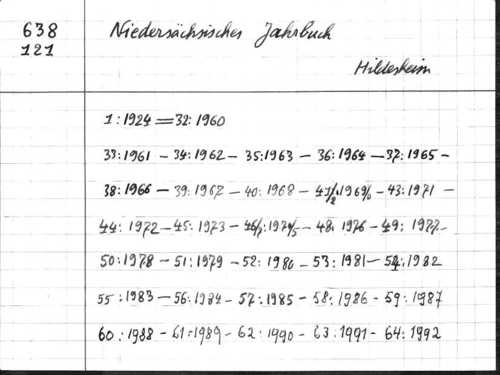 638
121
Niedersächsisches Jahrbuch
Hildesheim
1:1924 = 32:1960
33:1961 - 34:1962 - 35:1963 - 36:1964 - 37:1965 -
38:1966 - 39:1967 - 40:1968 - 41/2:1969/0 - 43:1971 -
44:1972 - 45:1973 - 46/7:1974/5 - 48:1976 - 49:1977 -
50:1978 - 51:1979 - 52:1980 - 53:1981 - 54:1982
55:1983 - 56:1984 - 57:1985 - 58:1986 - 59:1987
60:1988 - 61:1989 - 62:1990 - 63:1991 - 64:1992